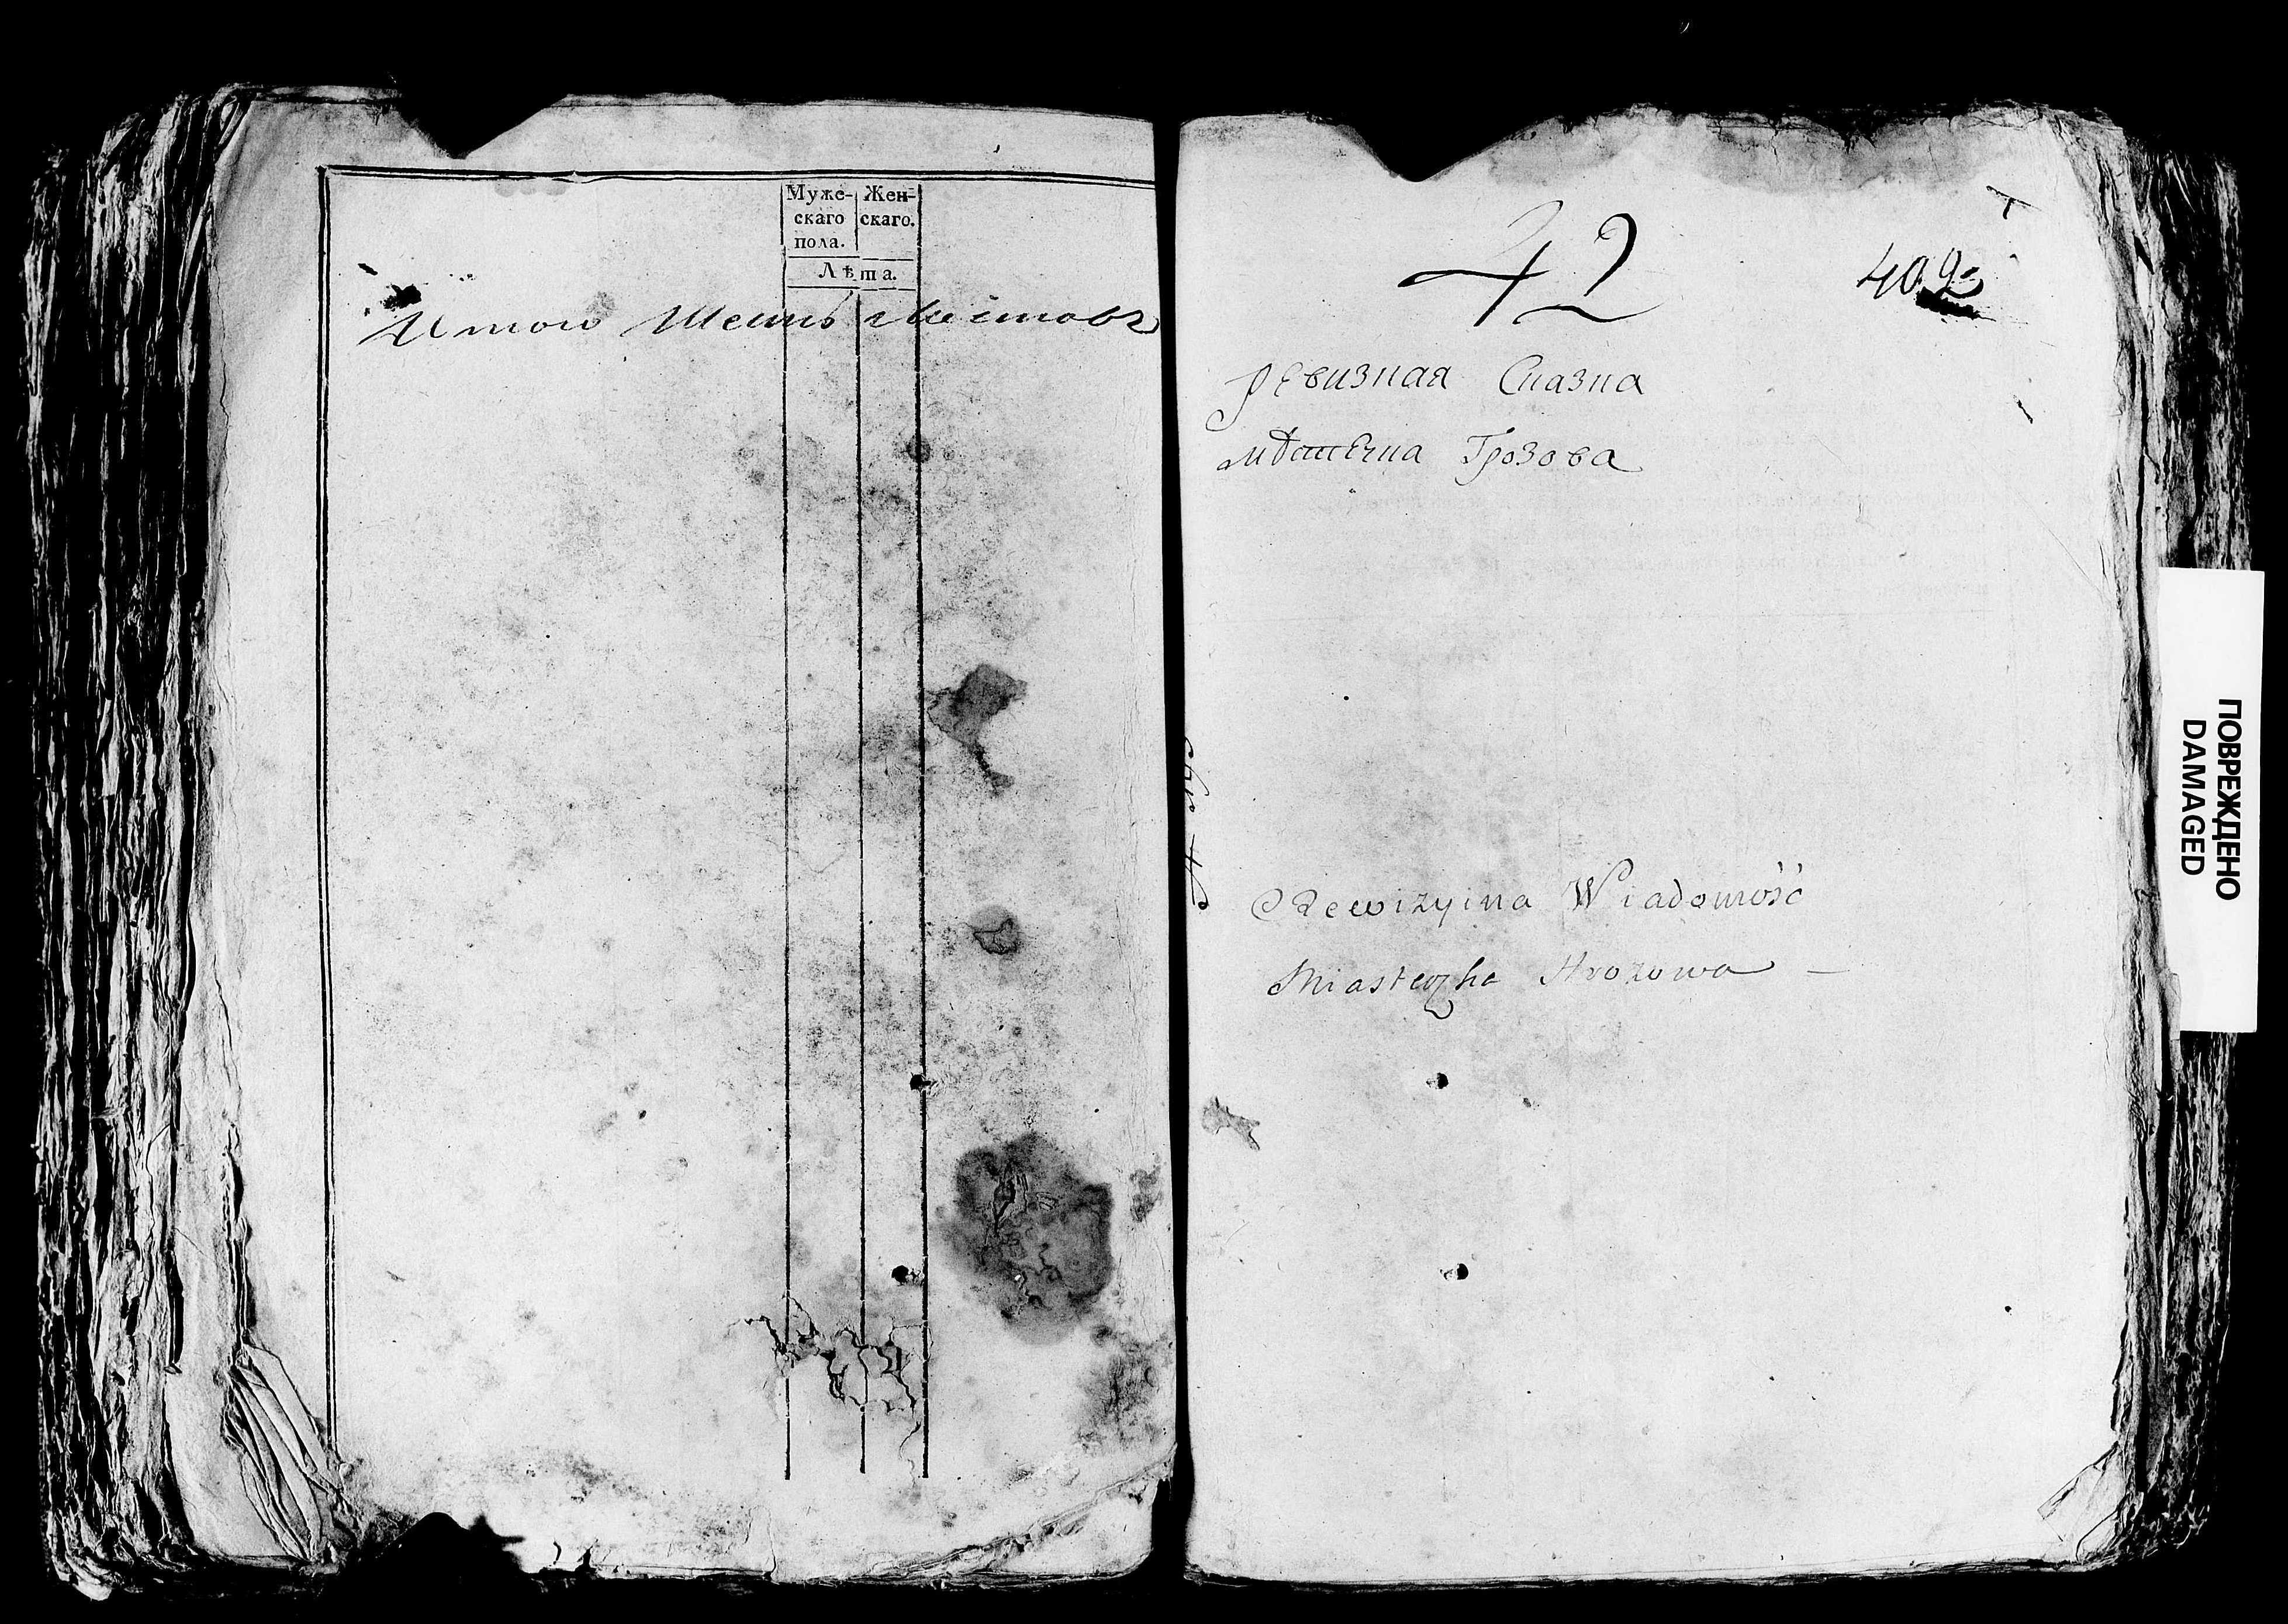 Муже- Жен-
скаго скаго.
пола.
Лѣта.
Итого Шесть листовъ
42
402
Ревизная Сказка
мѣстечка Грозова
Rewizyina Wiadomość
Miasteczka Hrozowa —
ПОВРЕЖДЕНО
DAMAGED